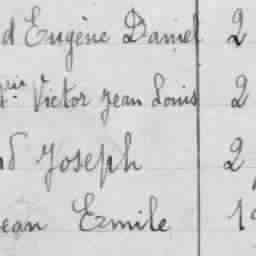 d Eugène Daniel 2
Victor Jean Louis 2
Joseph 2
ean Ermile 19